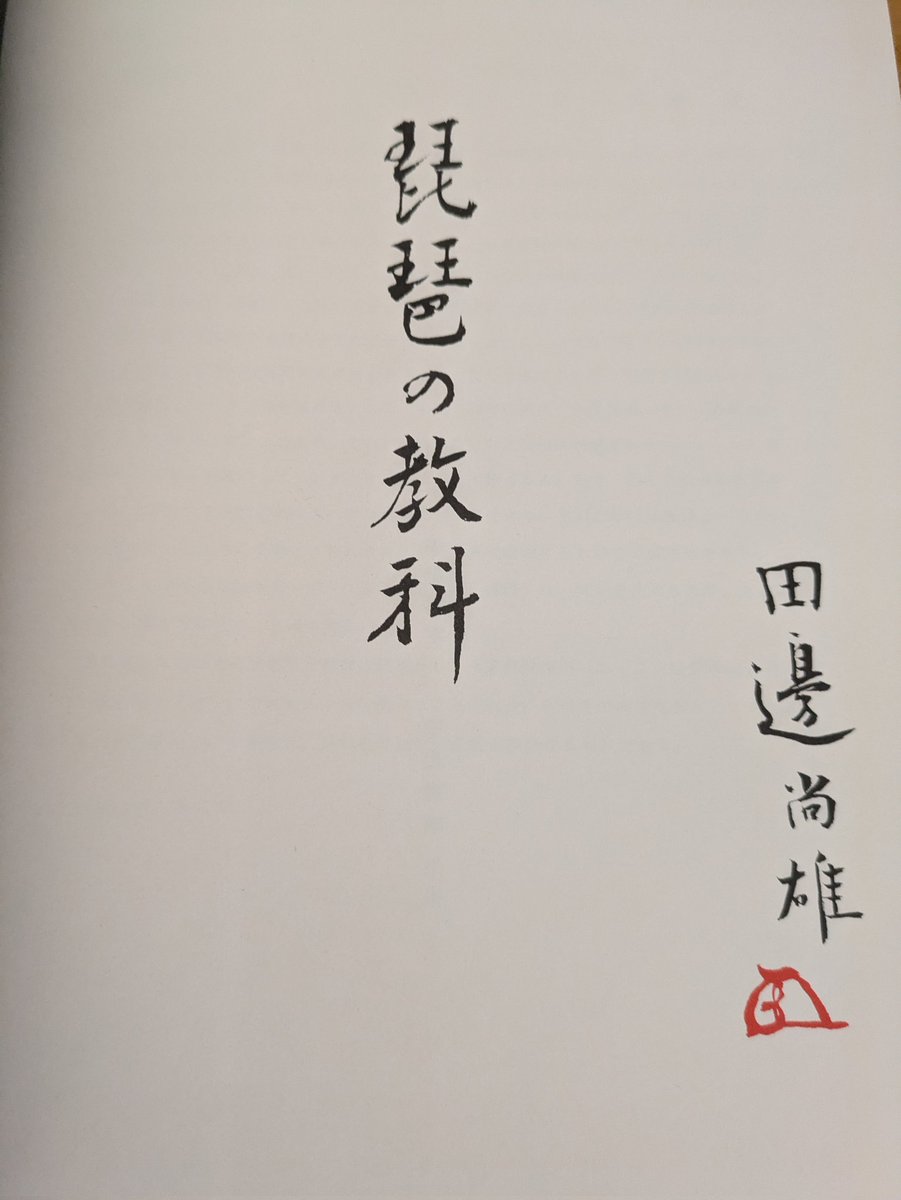 琵琶の教科
田邊尚雄